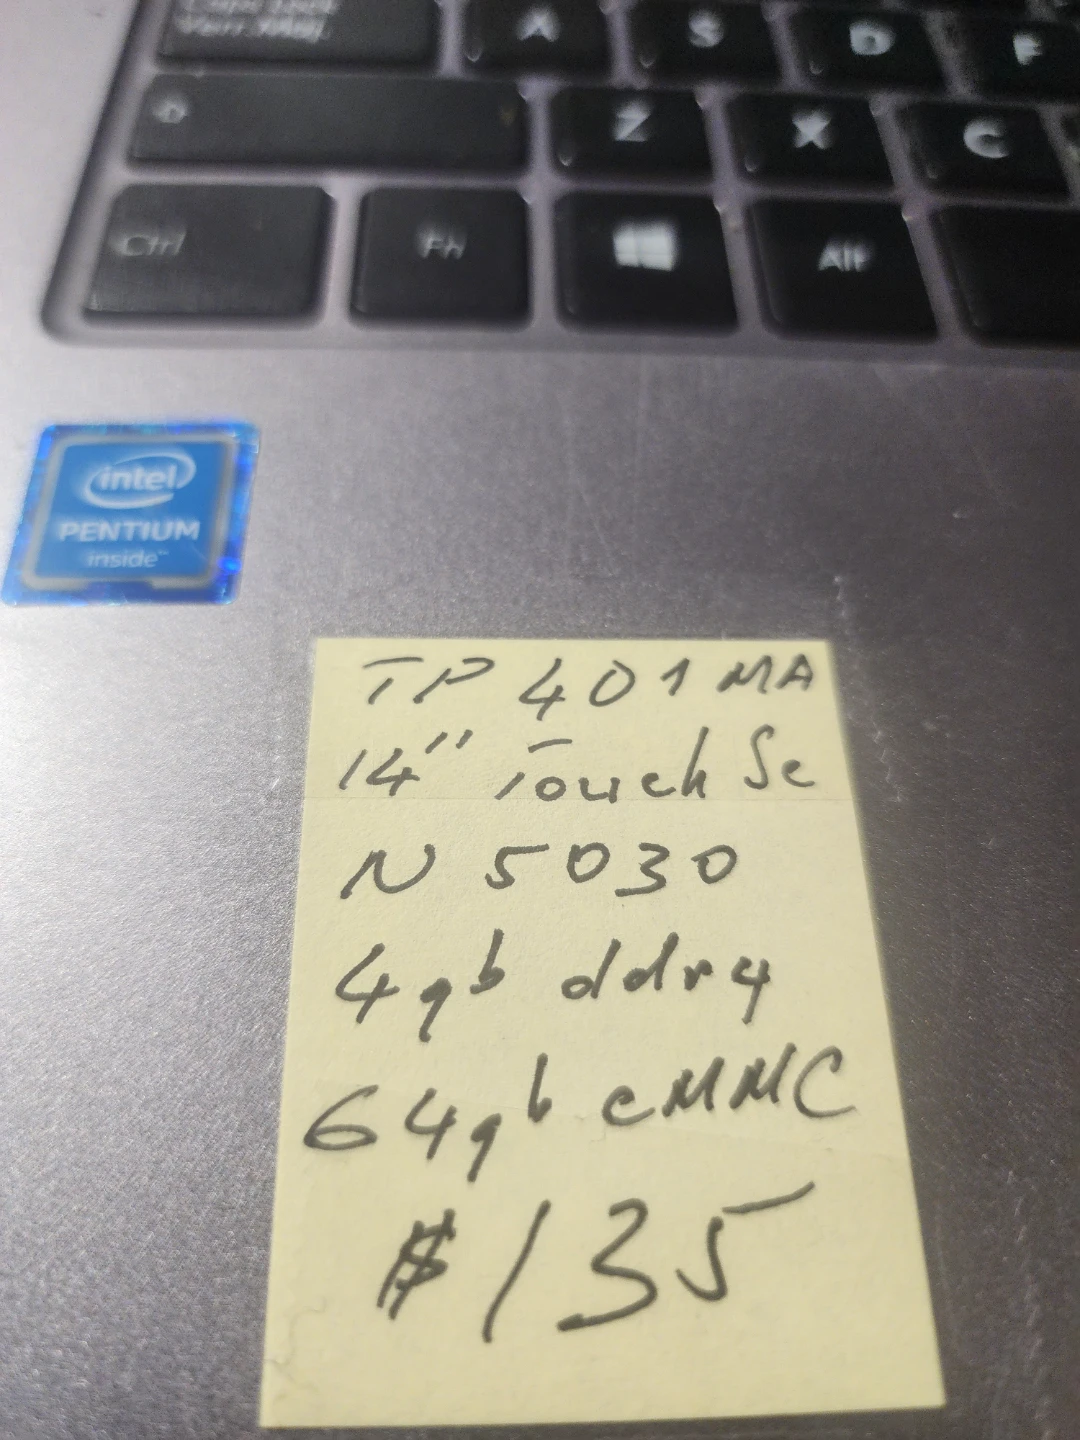 Caps Lock
Verr. Maj.
A S D F
Z X C
Ctrl Fn Alt
intel
PENTIUM
inside™
TP 401 MA
14" Touch Sc
N 5030
4gb ddr4
64gb eMMC
$135